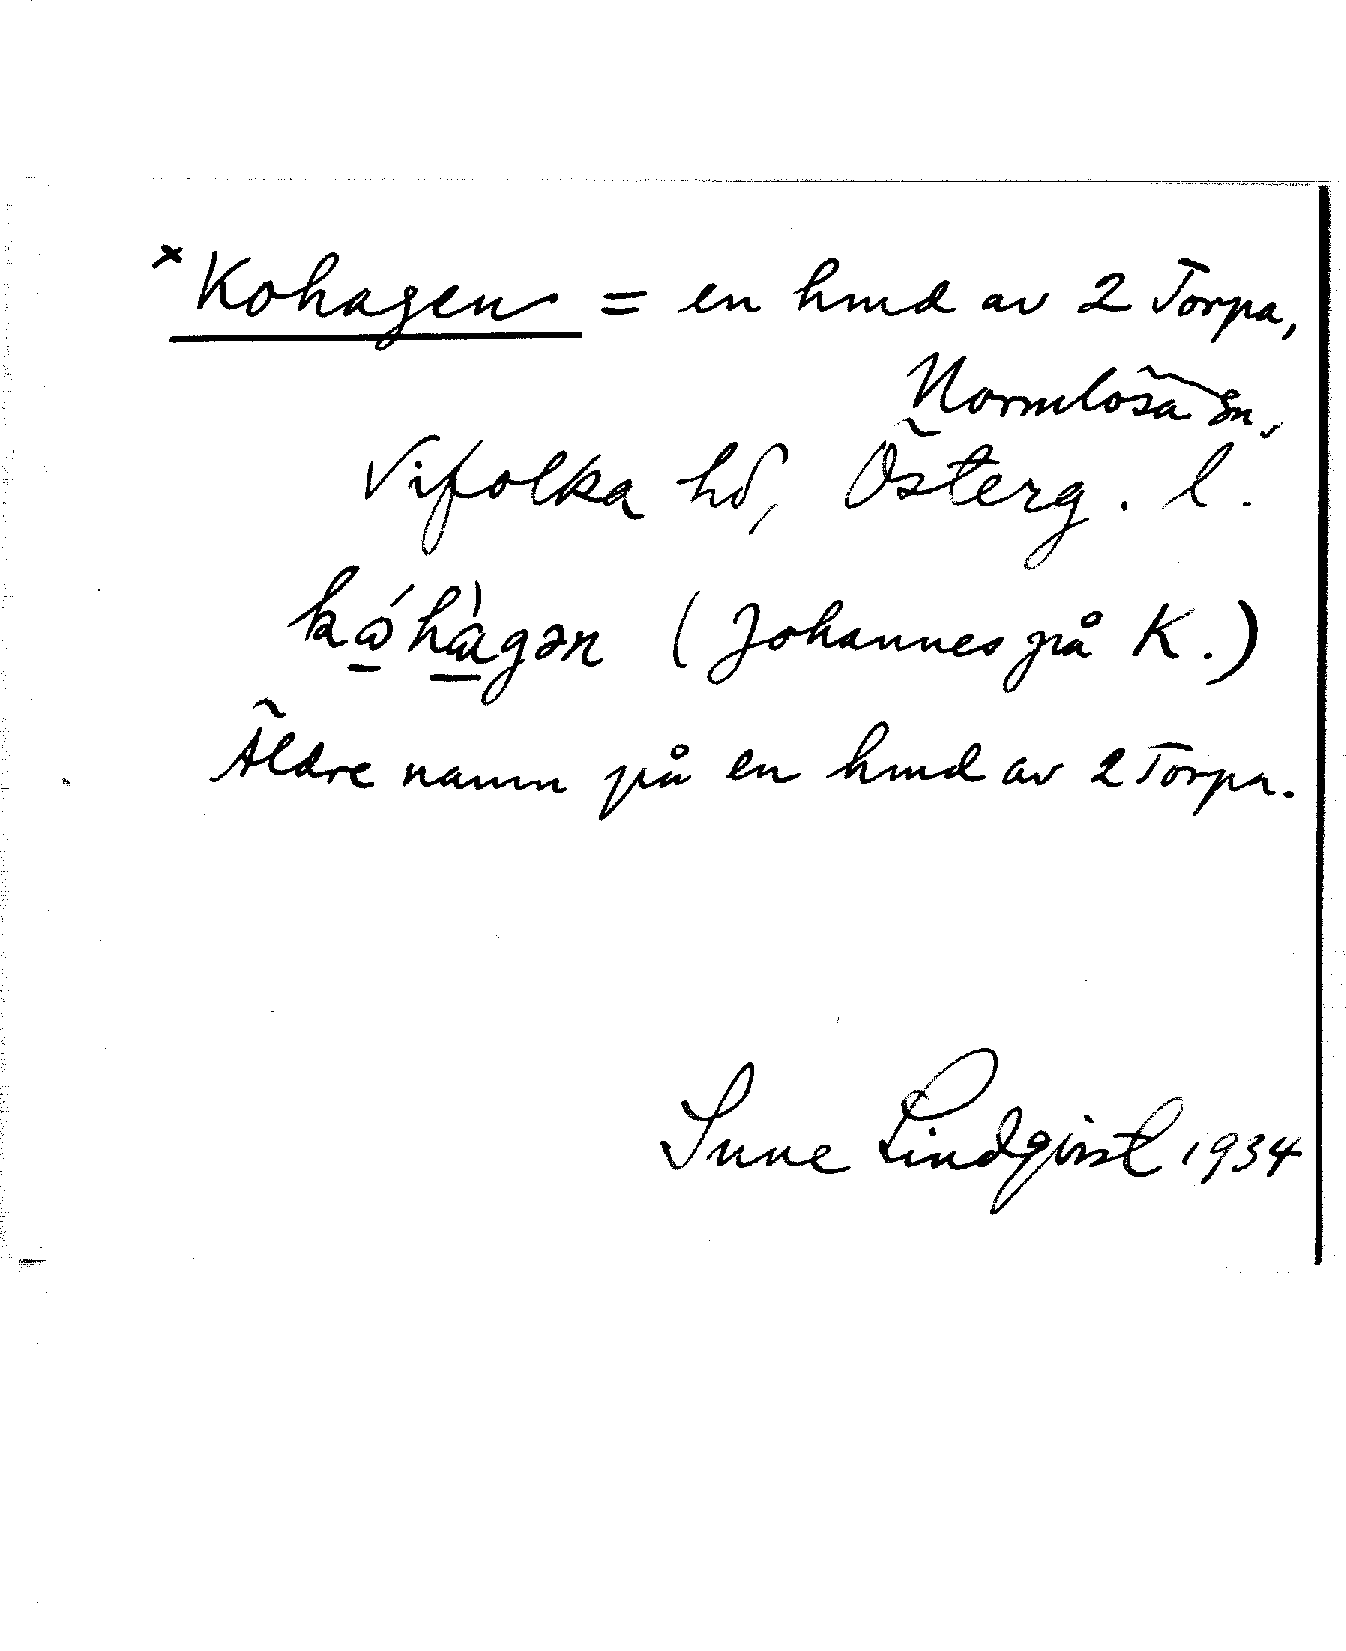 × Kohagen = en hmd av 2 Torpa,
Normlösa sn,
Vifolka hd, Österg. l.
kǿhàgən (Johannes på K.)
Äldre namn på en hmd av 2 Torpa.
Sune Lindqvist 1934